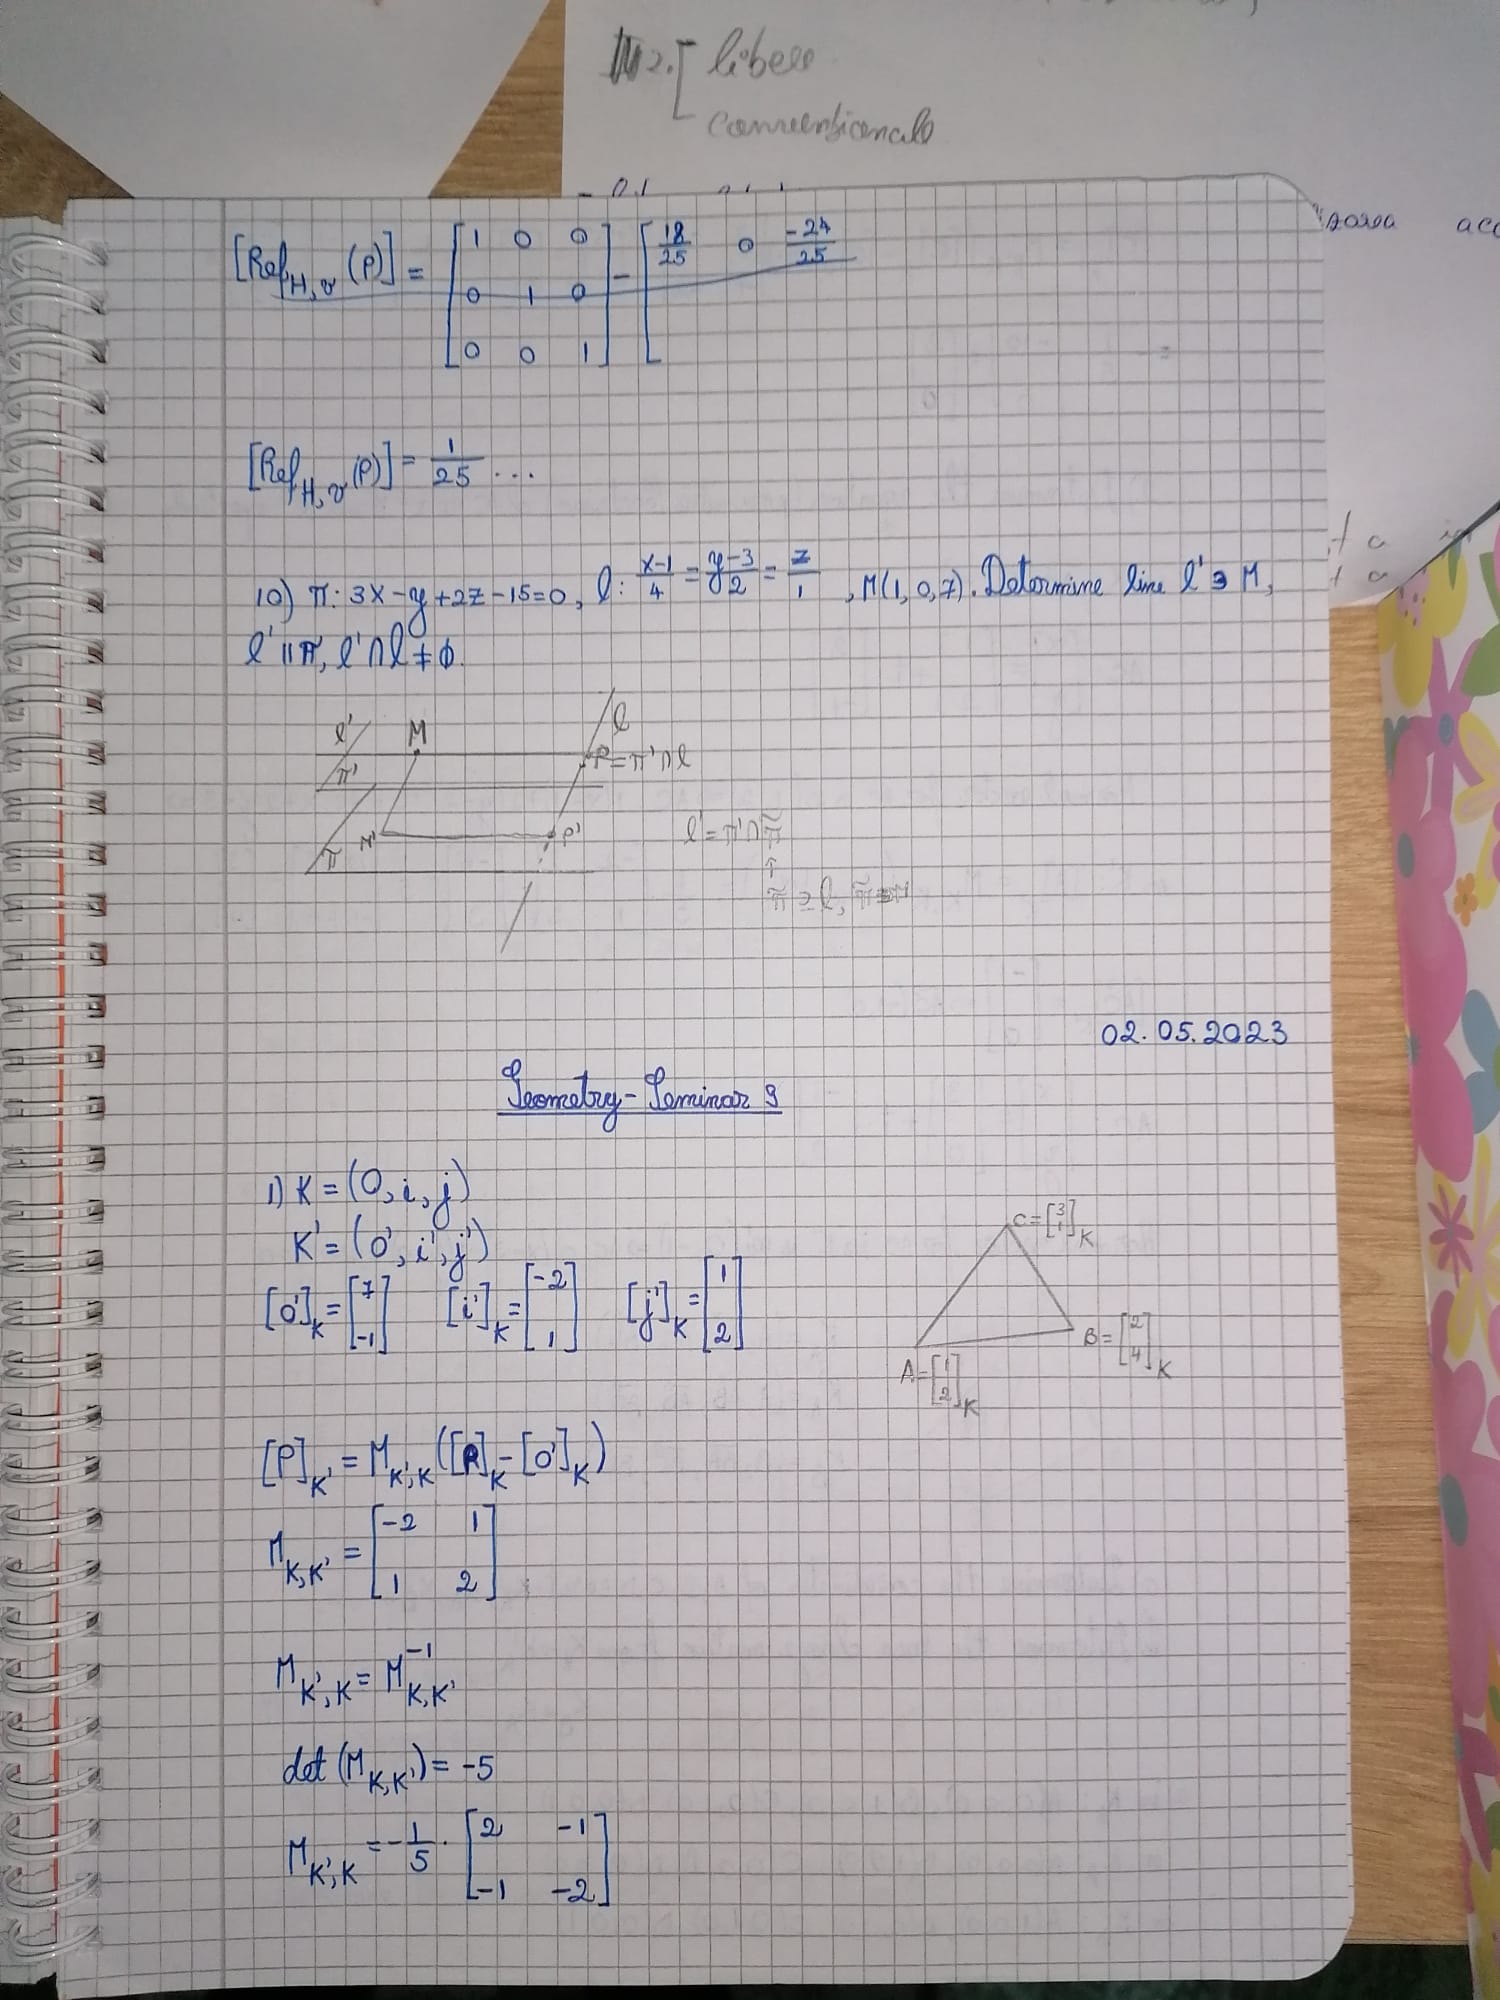 2. [ libere
conventionale
[Ref_{H,v}(P)] = [1 0 0; 0 1 0; 0 0 1] - [18/25 0 -24/25
[Ref_{H,v}(P)] = 1/25 ...
10) π: 3x-y+2z-15=0, l: x-1/4 = y-3/2 = z/1, M(1,0,7). Determine line l' ∋ M,
l' ∥ π, l' ∩ l ≠ ϕ.
l' M l
π' P=π'∩l
M' P' l'=π'∩π̃
π ↑
π̃ ⊇ l, π̃ ∋ M
02.05.2023
Geometry - Seminar 9
1) K = (O, i, j)
K' = (O', i', j')
C = [3 1]_K
[O']_K = [7 -1] [i']_K = [-2 1] [j']_K = [1 2]
B = [2 4]_K
A = [1 2]_K
[P]_{K'} = M_{K',K} ([P]_K - [O']_K)
M_{K,K'} = [-2 1; 1 2]
M_{K',K} = M_{K,K'}^{-1}
det (M_{K,K'}) = -5
M_{K',K} = -1/5 · [2 -1; -1 -2]